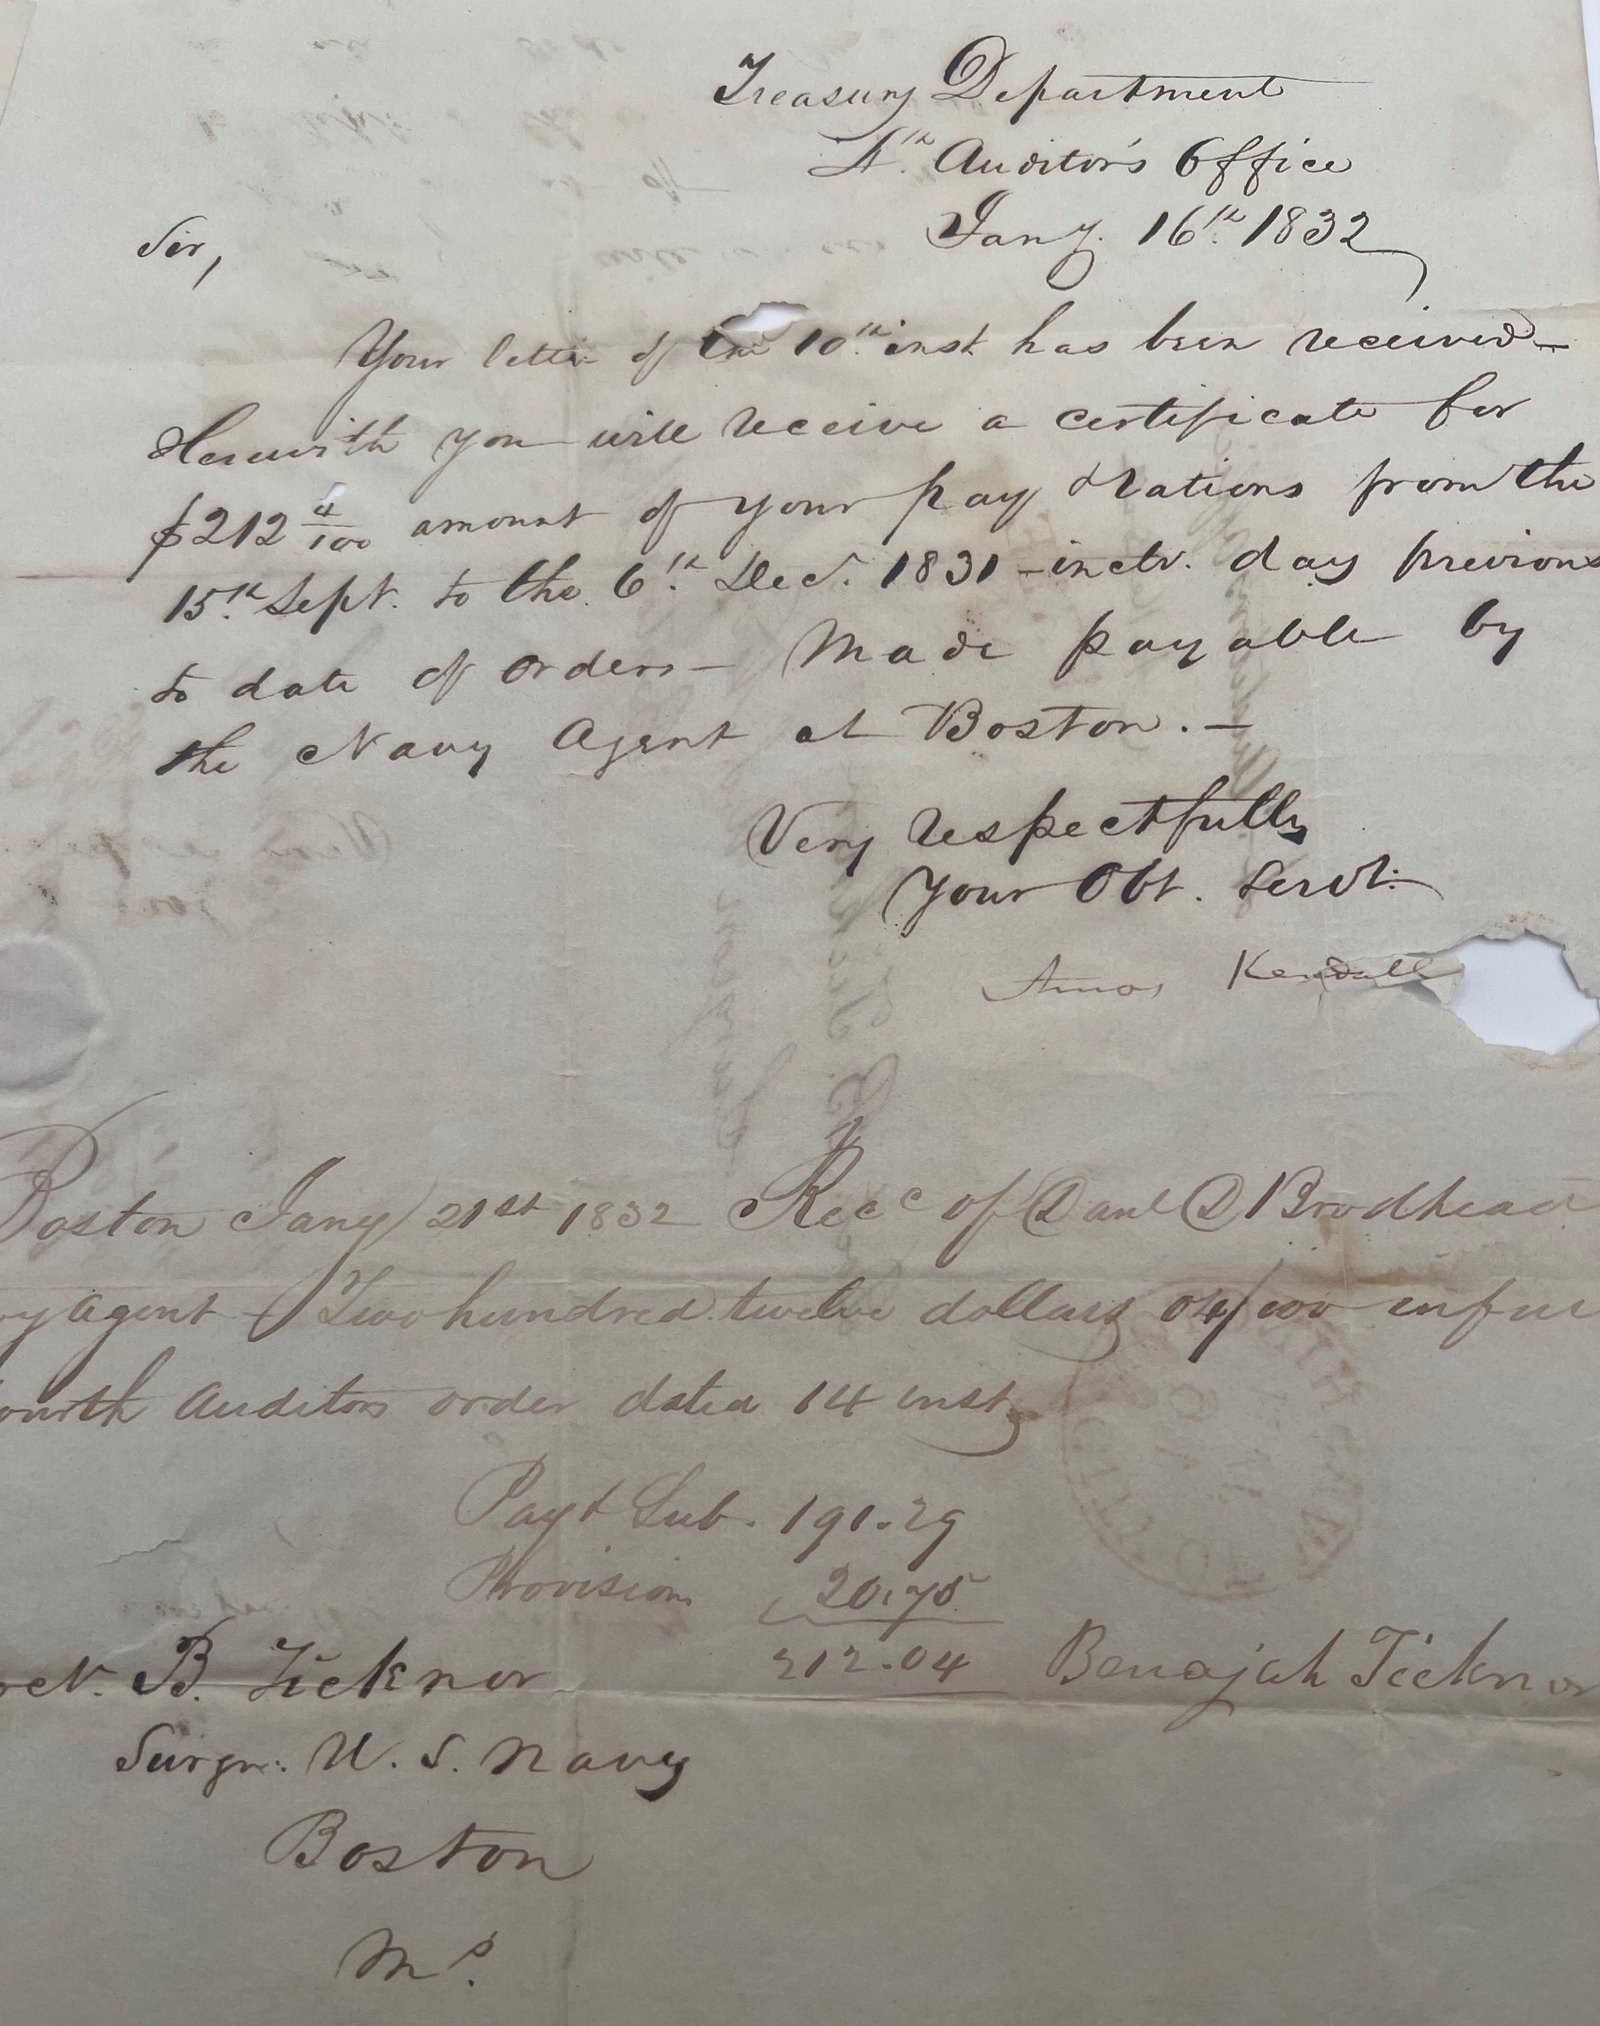 Treasury Department
4th. Auditor's Office
Jany. 16th. 1832
Sir,
Your letter of the 10th. inst has been received—
Herewith you will receive a certificate for
$212 4/100 amount of your pay & rations from the
15th. Sept. to the 6th. Dec. 1831 - inclv. day previous
to date of orders — Made payable by
the Navy Agent at Boston. —
Very respectfully
Your Obt. Servt.
Amos Kendall
Boston Jany 21st 1832 Recd of Danl D Brodhead
y Agent — Two hundred twelve dollars 04/100 in full
ourth Auditors order dated 14 inst
Pay & Sub. 191.29
Provision 20.75
212.04 Benajah Ticknor
B. Ticknor
Surgn. U. S. Navy
Boston
Ms.